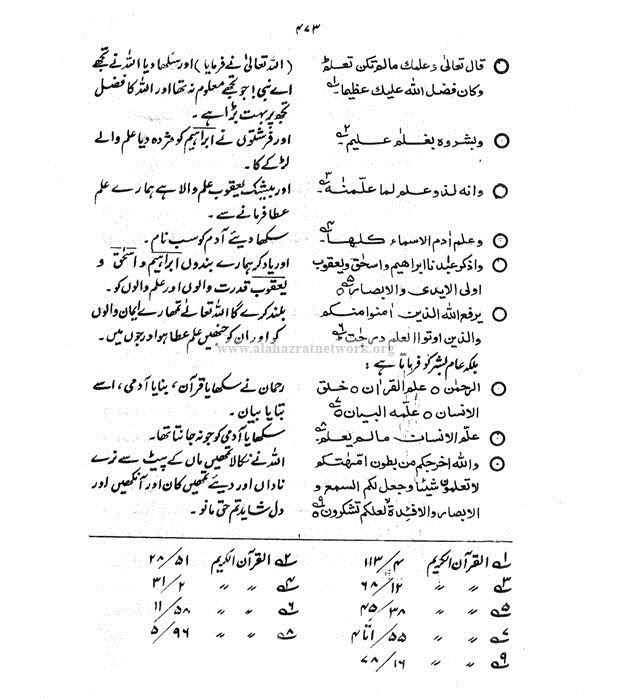 ۴۷۳
قال تعالیٰ وعلمك مالم تكن تعلم
وكان فضل الله عليك عظيما۔ لـ۱
(اللہ تعالیٰ نے فرمایا) اور سکھا دیا اللہ نے تجھے
اے نبی! جو تجھے معلوم نہ تھا اور اللہ کا فضل
تجھ پر بہت بڑا ہے۔
وبشروہ بغلٰم علیم۔ ۲
اور فرشتوں نے ابراہیم کو مژدہ دیا علم والے
لڑکے کا۔
وانه لذو علم لما علّمنٰه۔ ۳
اور بیشک یعقوب علم والا ہے ہمارے علم
عطا فرمانے سے۔
وعلم اٰدم الاسماء كلها۔ ۴
سکھا دیئے آدم کو سب نام۔
واذكر عبٰدنا ابراهيم واسحٰق ويعقوب
اولی الايدی والابصار ۵
اور یاد کر ہمارے بندوں ابراہیم و اسحٰق و
یعقوب قدرت والوں اور علم والوں کو۔
يرفع الله الذين اٰمنوا منكم
والذين اوتوا العلم درجٰت ۶
بلند کرے گا اللہ تعالےٰ تمھارے ایمان والوں
کو اور ان کو جنھیں علم عطا ہوا درجوں میں۔
www.alahazratnetwork.org
بلکہ عام بشر کو فرماتا ہے:
الرحمٰن ○ علم القراٰن ○ خلق
الانسان ○ علّمه البيان ○ ۷
رحمان نے سکھایا قرآن، بنایا آدمی، اسے
بتایا بیان۔
علّم الانسان مالم يعلم ۸
سکھایا آدمی کو جو نہ جانتا تھا۔
والله اخرجكم من بطون امّهٰتكم
لا تعلمون شيئا وجعل لكم السمع و
الابصار والافئدة لعلكم تشكرون ۹
اللہ نے نکالا تمھیں ماں کے پیٹ سے نرے
ناداں اور دیئے تمھیں کان اور آنکھیں اور
دل شاید تم حق مانو۔
۱ القرآن الکریم ۴/۱۱۳
۲ القرآن الکریم ۵۱/۲۸
۳ " " ۱۲/۶۸
۴ " " ۲/۳۱
۵ " " ۳۸/۴۵
۶ " " ۵۸/۱۱
۷ " " ۵۵/۱تا۴
۸ " " ۹۶/۵
۹ " " ۱۶/۷۸